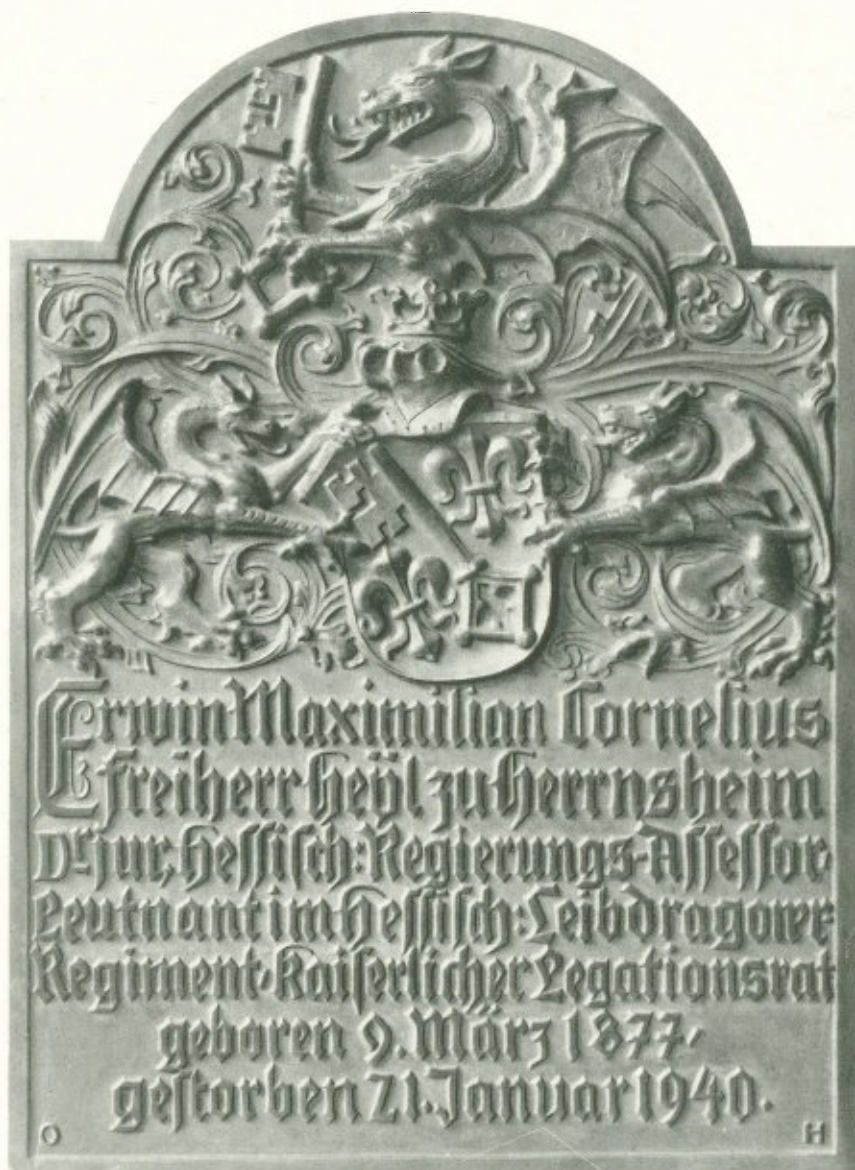 Erwin Maximilian Cornelius
Freiherr Heÿl zu Herrnsheim
Dr. jur., Hessisch: Regierungs-Assessor
Leutnant im Hessisch: Leibdragoner-
Regiment, Kaiserlicher Legationsrat
geboren 9. März 1877,
gestorben 21. Januar 1940.
O H